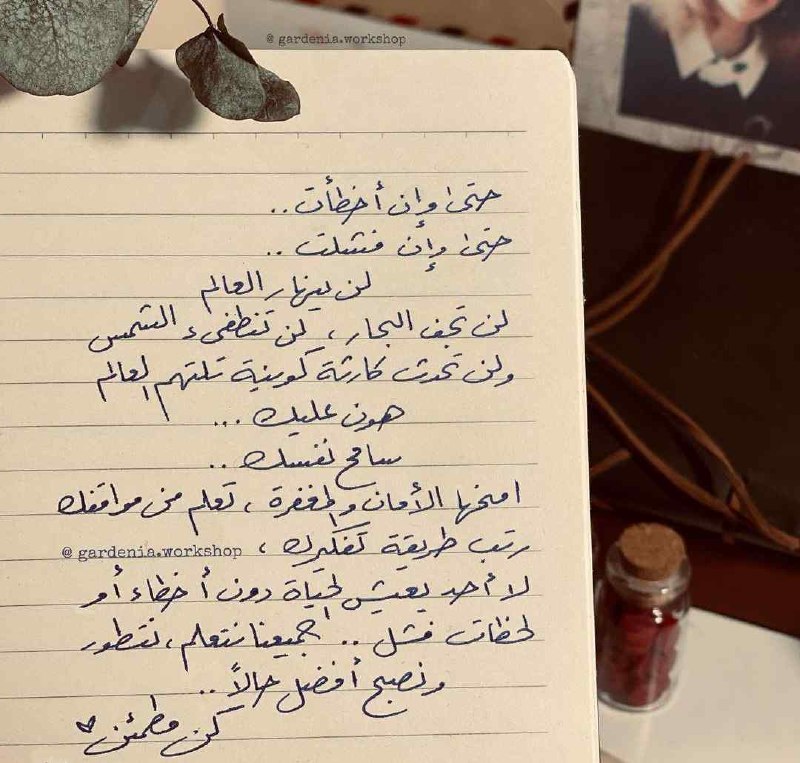 @ gardenia.workshop
حتى وإن أخطأت ..
حتى وإن فشلت ..
لن ينهار العالم
لن تجف البحار، لن تنطفىء الشمس
ولن تحدث كارثة كونية تلتهم العالم
هون عليك ...
سامح نفسك ..
امنحها الأمان والمغفرة، تعلم من مواقفك
رتب طريقة تفكيرك، @ gardenia.workshop
لا أحد يعيش الحياة دون أخطاء أو
لحظات فشل .. جميعنا نتعلم، نتطور
ونصبح أفضل حالاً ..
كن مطمئن ♥